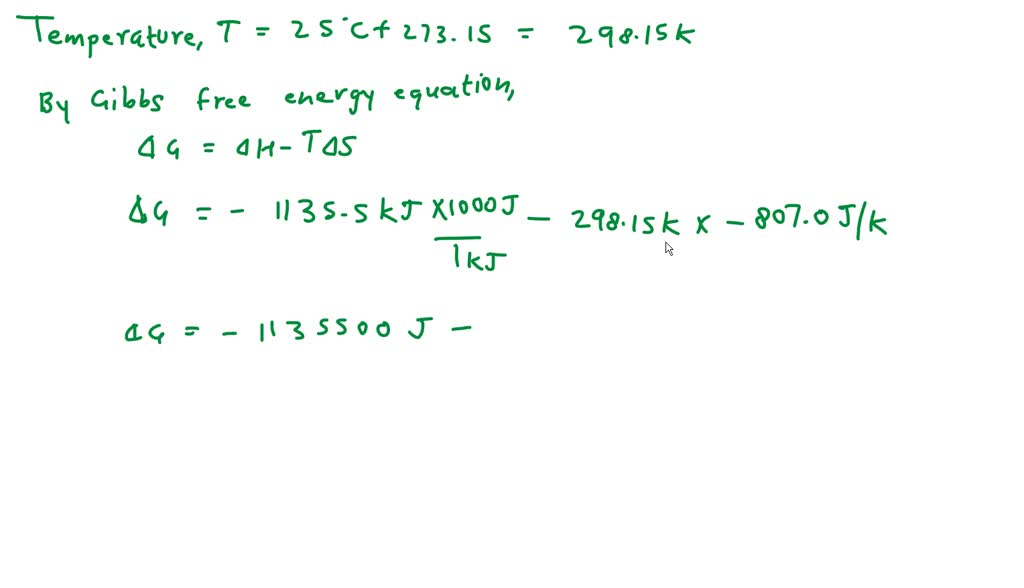 Temperature, T = 25°C + 273.15 = 298.15K
By Gibbs free energy equation,
ΔG = ΔH - TΔS
ΔG = - 1135.5 kJ x 1000J / 1kJ - 298.15K x - 807.0 J/K
ΔG = - 1135500 J -